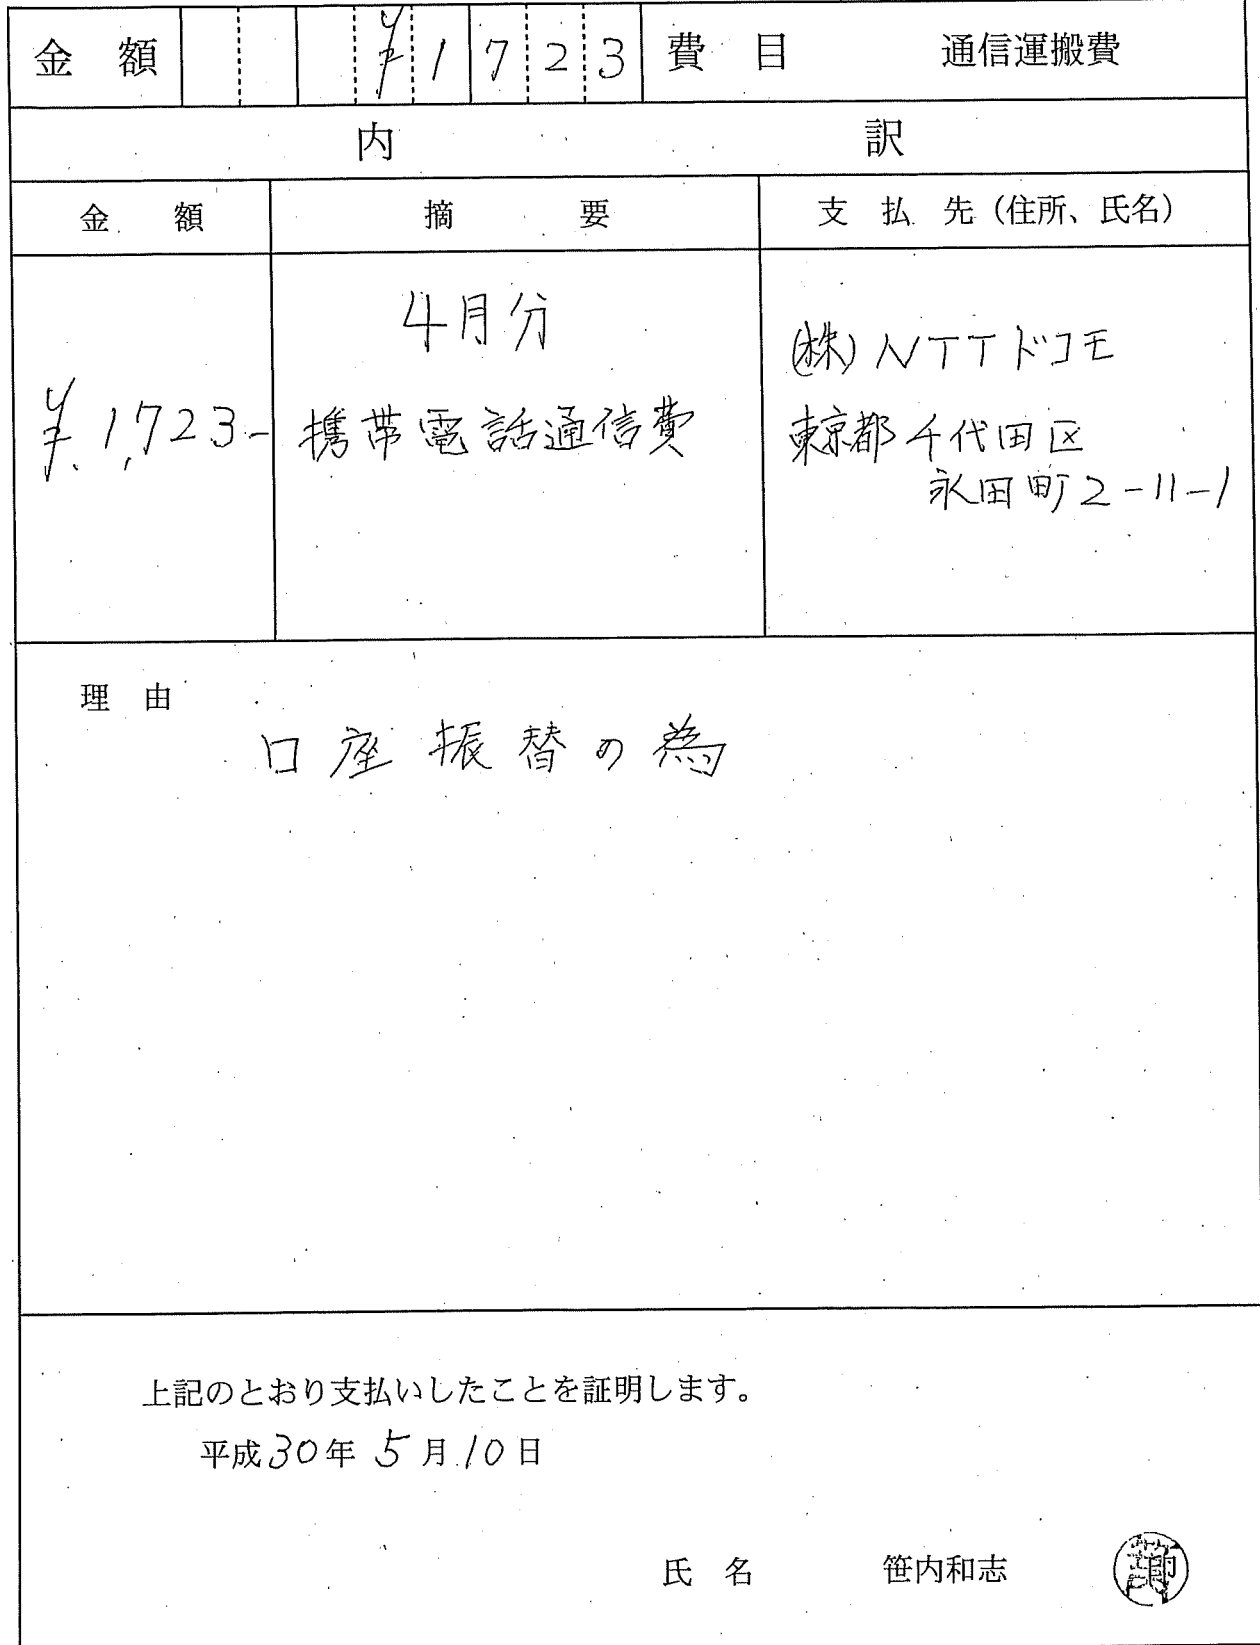 金額 ¥1723 費目 通信運搬費
内訳
金額 摘要 支払先（住所、氏名）
4月分
携帯電話通信費
¥.1,723-
(株)NTTドコモ
東京都千代田区
永田町2-11-1
理由
口座振替の為
上記のとおり支払いしたことを証明します。
平成30年5月10日
氏名 笹内和志